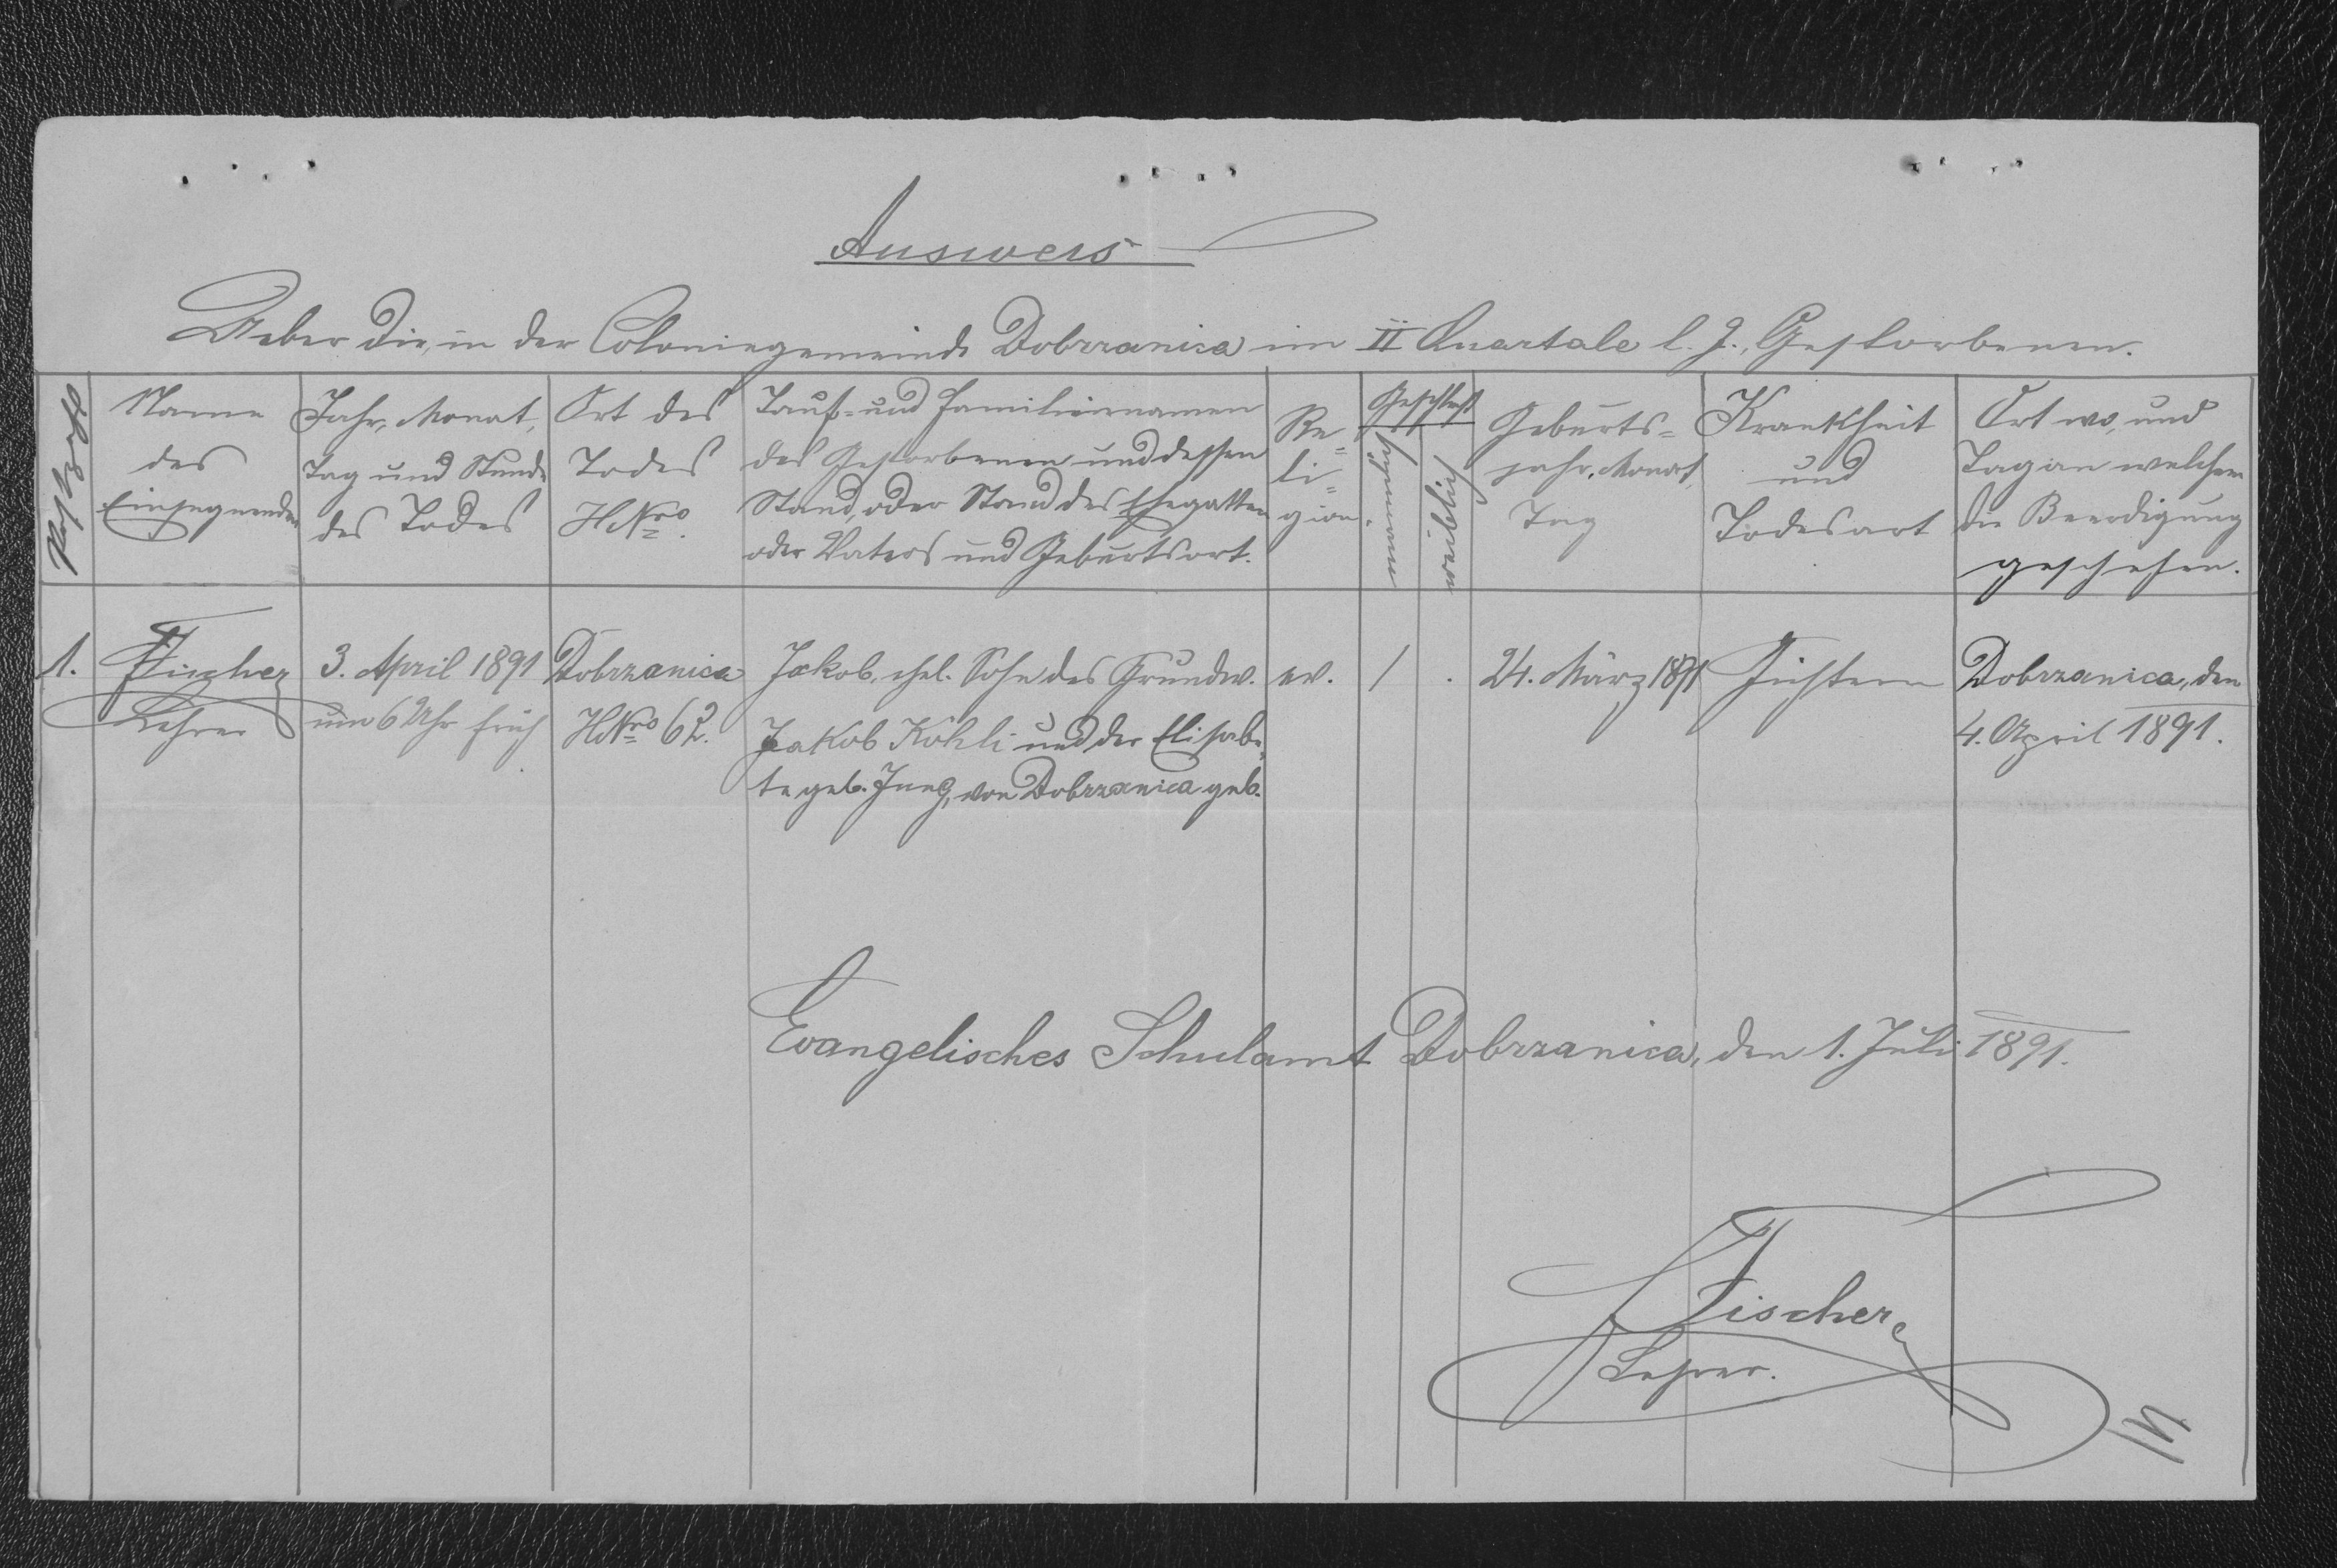 Ausweis
Ueber die, in der Coloniegemeinde Dobrzanica im II Quartale l. J., Gestorbenen.
Postzahl
Name
des
Einsegnenden
Jahr, Monat,
Tag und Stunde
des Todes
Ort des
Todes
HNro.
Tauf- und Familiennamen
des Gestorbenen und dessen
Stand, oder Stand des Ehegatten
oder Vaters und Geburtsort.
Re=
li=
gion
Geschlecht
männl.
weiblich
Geburts=
jahr, Monat,
Tag
Krankheit
und
Todesart
Ort wo, und
Tag an welchem
die Beerdigung
geschehen.
1.
Fischer
Lehrer
3. April 1891
um 6 Uhr früh
Dobrzanica
HNro 62.
Jakob, ehel. Sohn des Grundw.
Jakob Köhli und der Elisabe=
te geb. Jung, von Dobrzanica geb.
ev.
1
.
24. März 1891
Dobrzanica, den
4. April 1891.
Evangelisches Schulamt Dobrzanica, den 1. Juli 1891.
Fischer
Lehrer.